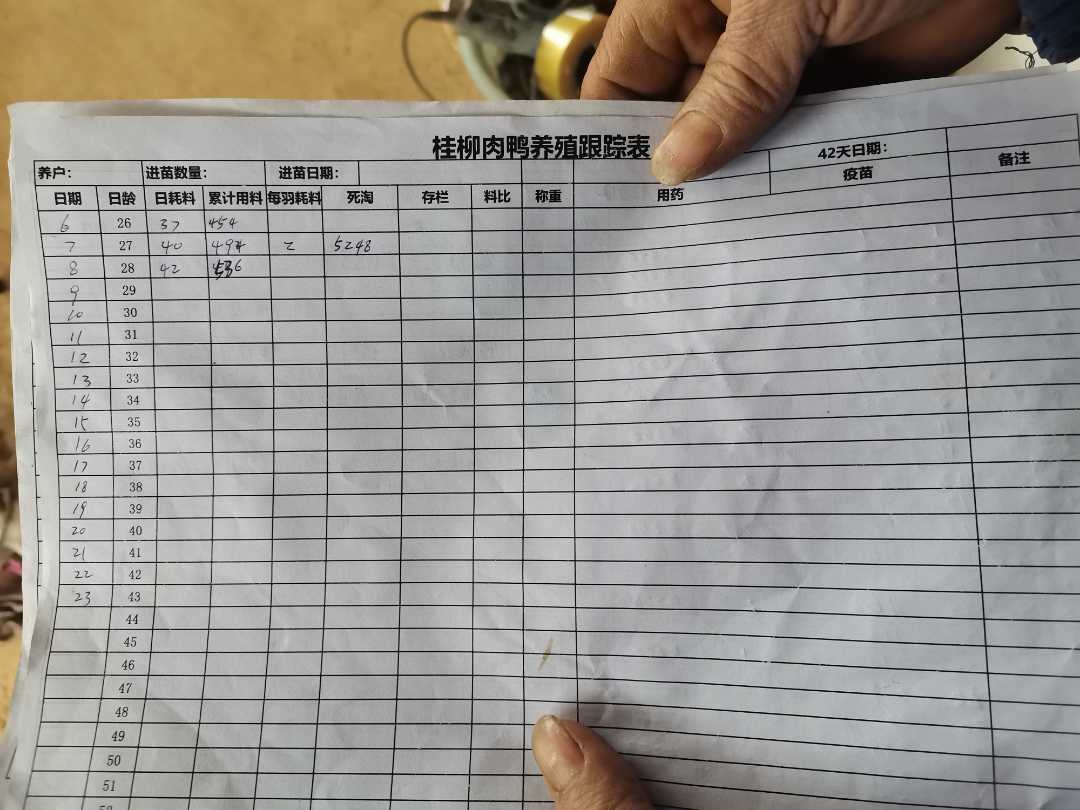 桂柳肉鸭养殖跟踪表
养户： 进苗数量： 进苗日期： 42天日期： 备注
日期 日龄 日耗料 累计用料 每羽耗料 死淘 存栏 料比 称重 用药 疫苗
6 26 37 454
7 27 40 494 2 5248
8 28 42 536
9 29
10 30
11 31
12 32
13 33
14 34
15 35
16 36
17 37
18 38
19 39
20 40
21 41
22 42
23 43
44
45
46
47
48
49
50
51